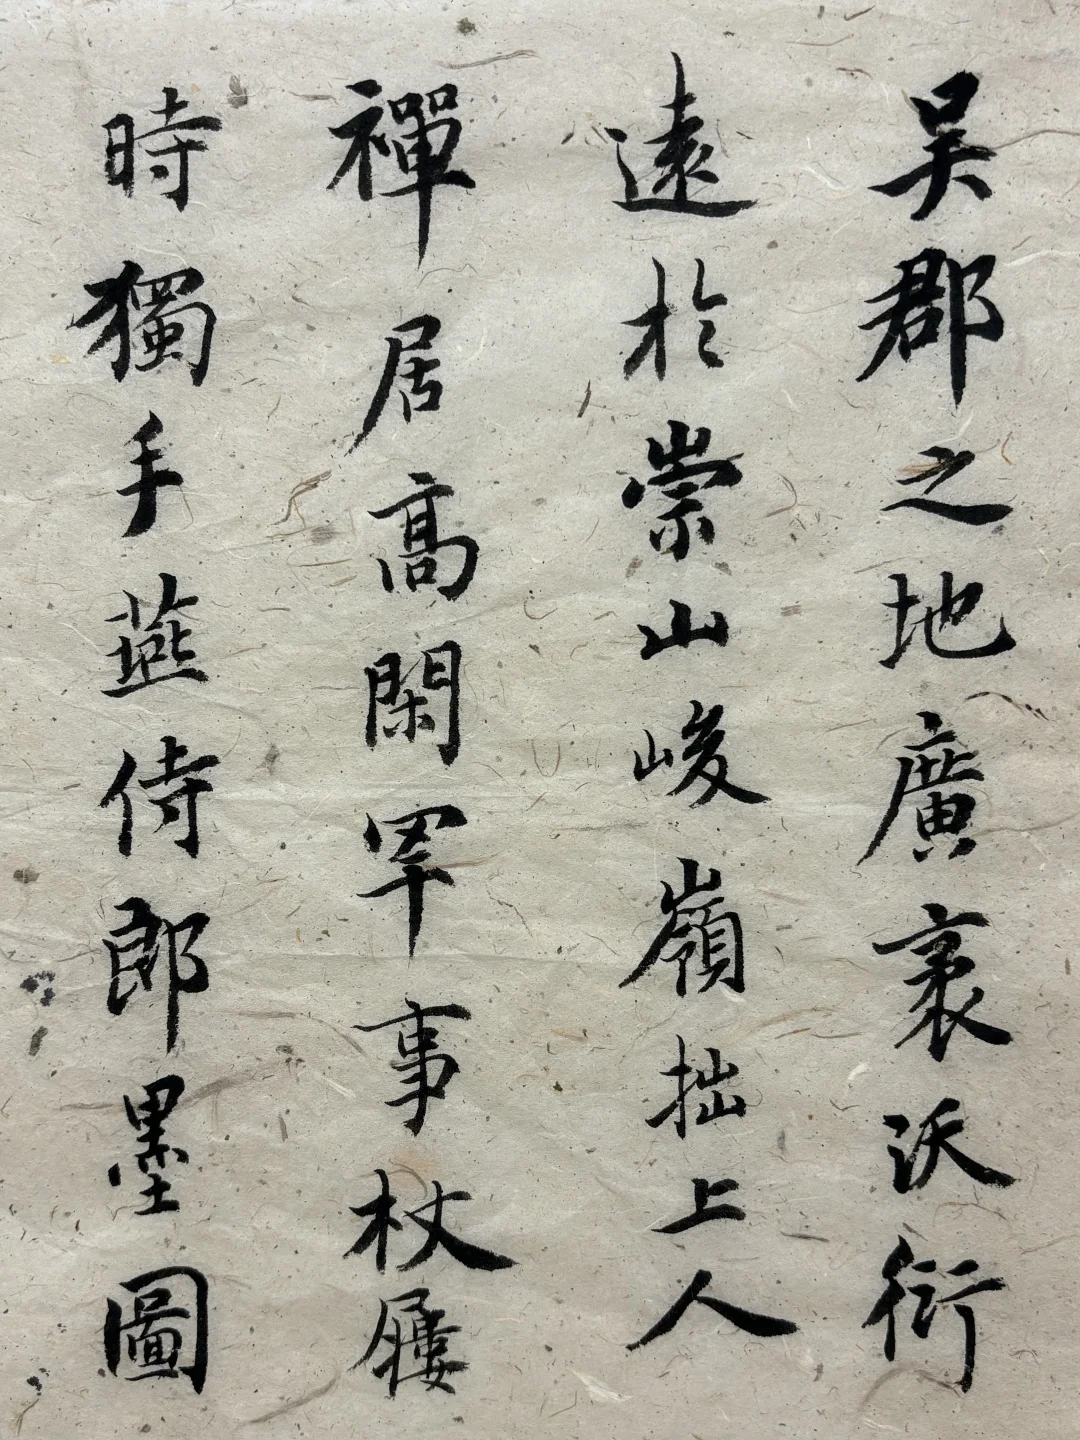 吴郡之地廣袤沃衍
遠於崇山峻嶺拙上人
禪居高閑罕事杖屨
時獨手燕侍郎墨圖